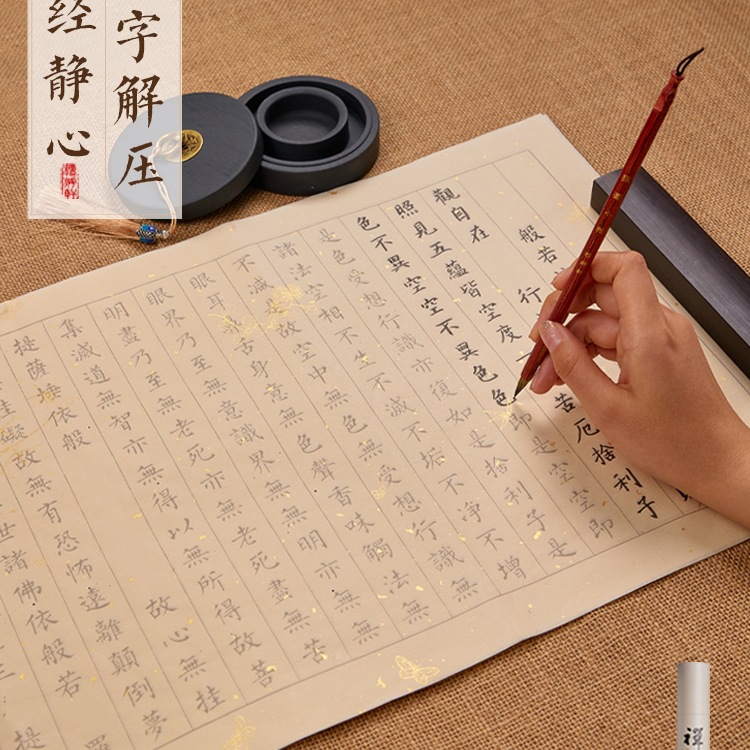 字解压
经静心
般若
觀自在行
照見五蘊皆空度苦厄捨利子
色不異空空不異色色即是空空即
是色受想行識亦復如是捨利子是
諸法空相不生不滅不垢不淨不增
不減故空中無色無受想行識無
眼耳舌身意無色聲香味觸法無
眼界乃至無意識界無無明亦無無
明盡乃至無老死亦無老死盡無苦
集滅道無智亦無得以無所得故菩
提薩埵依般故心無挂
礙故無有恐怖遠離顛倒夢
世諸佛依般若
提
禪